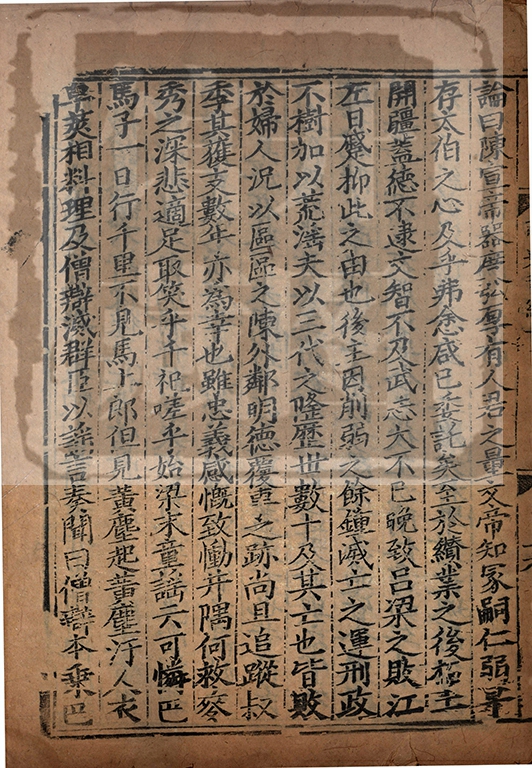 論曰陳宣帝器度弘厚有人君之量文帝知冢嗣仁弱早
存太伯之心及乎弗悆咸已委託矣至於纘業之後拓土
開疆蓋德不逮文智不及武志大不已晚致呂梁之敗江
左日蹙抑此之由也後主因削弱之餘鍾滅亡之運刑政
不樹加以荒淫夫以三代之隆歷世數十及其亡也皆敗
於婦人況以區區之陳外鄰明德覆車之跡尚且追蹤叔
季其獲支數年亦為幸也雖忠義感慨致慟井隅何救麥
秀之深悲適足取笑乎千祀嗟乎始梁末童謠云可憐巴
馬子一日行千里不見馬上郎但見黃塵起黃塵汙人衣
皁莢相料理及僧辯滅群臣以謠言奏聞曰僧辯本乗巴